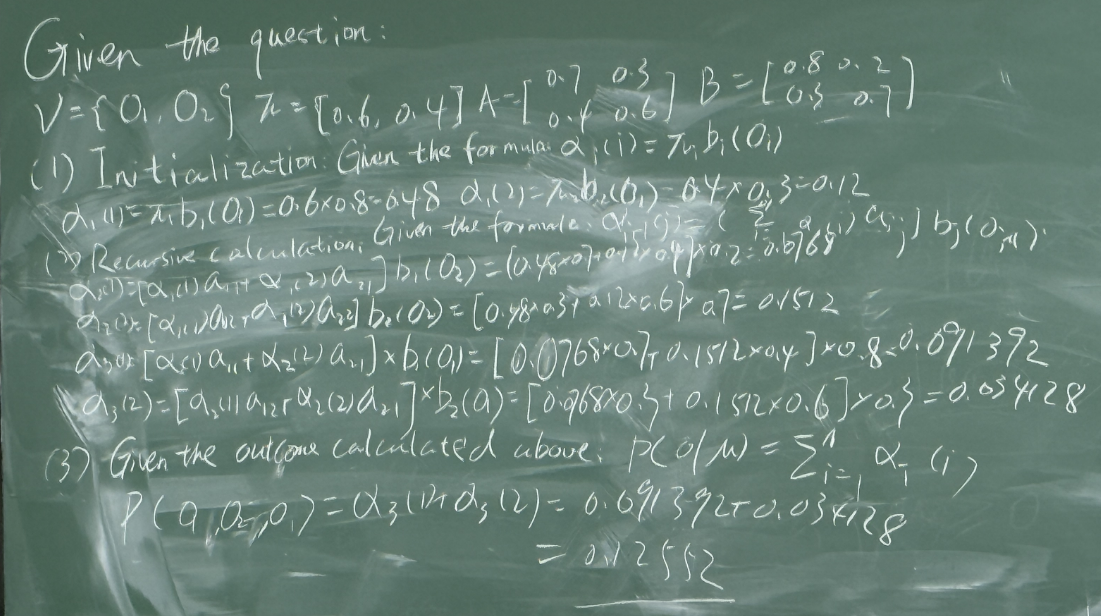 Given the question:
V={O₁,O₂} π=[0.6,0.4] A=[0.7 0.3 0.4 0.6] B=[0.8 0.2 0.3 0.7]
(1) Initialization: Given the formula: α₁(i)=πᵢbᵢ(O₁)
α₁(1)=π₁b₁(O₁)=0.6×0.8=0.48 α₁(2)=π₂b₂(O₁)=0.4×0.3=0.12
(2) Recursive calculation: Given the formula: αₜ₊₁(j)=(Σ αₜ(i)aᵢⱼ)bⱼ(Oₜ₊₁).
α₂(1)=[α₁(1)a₁₁+α₁(2)a₂₁]b₁(O₂)=[0.48×0.7+0.12×0.4]×0.2=0.0768
α₂(2)=[α₁(1)a₁₂+α₁(2)a₂₂]b₂(O₂)=[0.48×0.3+0.12×0.6]×0.7=0.1512
α₃(1)=[α₂(1)a₁₁+α₂(2)a₂₁]×b₁(O₁)=[0.0768×0.7+0.1512×0.4]×0.8=0.091392
α₃(2)=[α₂(1)a₁₂+α₂(2)a₂₁]×b₂(O₁)=[0.0768×0.3+0.1512×0.6]×0.3=0.034128
(3) Given the outcome calculated above: P(O/μ)=Σᵢ₌₁ᴺ αT(i)
P(O₁,O₂,O₁)=α₃(1)+α₃(2)=0.091392+0.034128
=0.12552